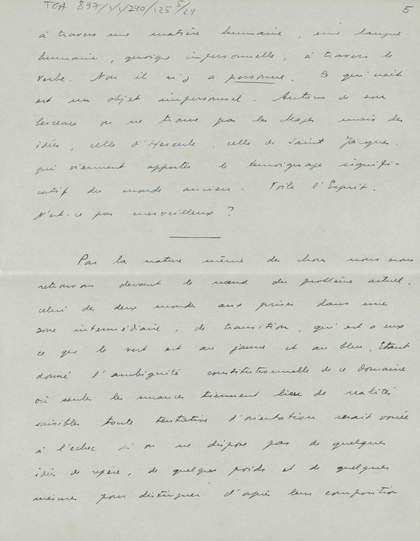 TGA 897/1/1/240/125 5/29
5
à travers une matière humaine, une langue
humaine, quoique impersonnelle, à travers le
Verbe. Non il n'y a personne. Ce qui naît
est un objet impersonnel. Autour de son
berceau on ne trouve pas les Mages mais des
idées, celle d'Hercule, celle de Saint Jacques,
qui viennent apporter le témoignage signifi-
catif du monde ancien. Voilà l'Esprit.
N'est-ce pas merveilleux ?
Par la nature même des choses nous nous
retrouvons devant le nœud du problème actuel,
celui de deux mondes aux prises dans une
zone intermédiaire, de transition, qui est à eux
ce que le vert est au jaune et au bleu. Etant
donné l'ambiguité constitutionnelle de ce domaine
où seules les nuances tiennent lieu de réalités
visibles toute tentative d'orientation serait vouée
à l'échec si on ne dispose pas de quelques
idées de repère, de quelques poids et de quelques
mesures pour distinguer d'après leur composition